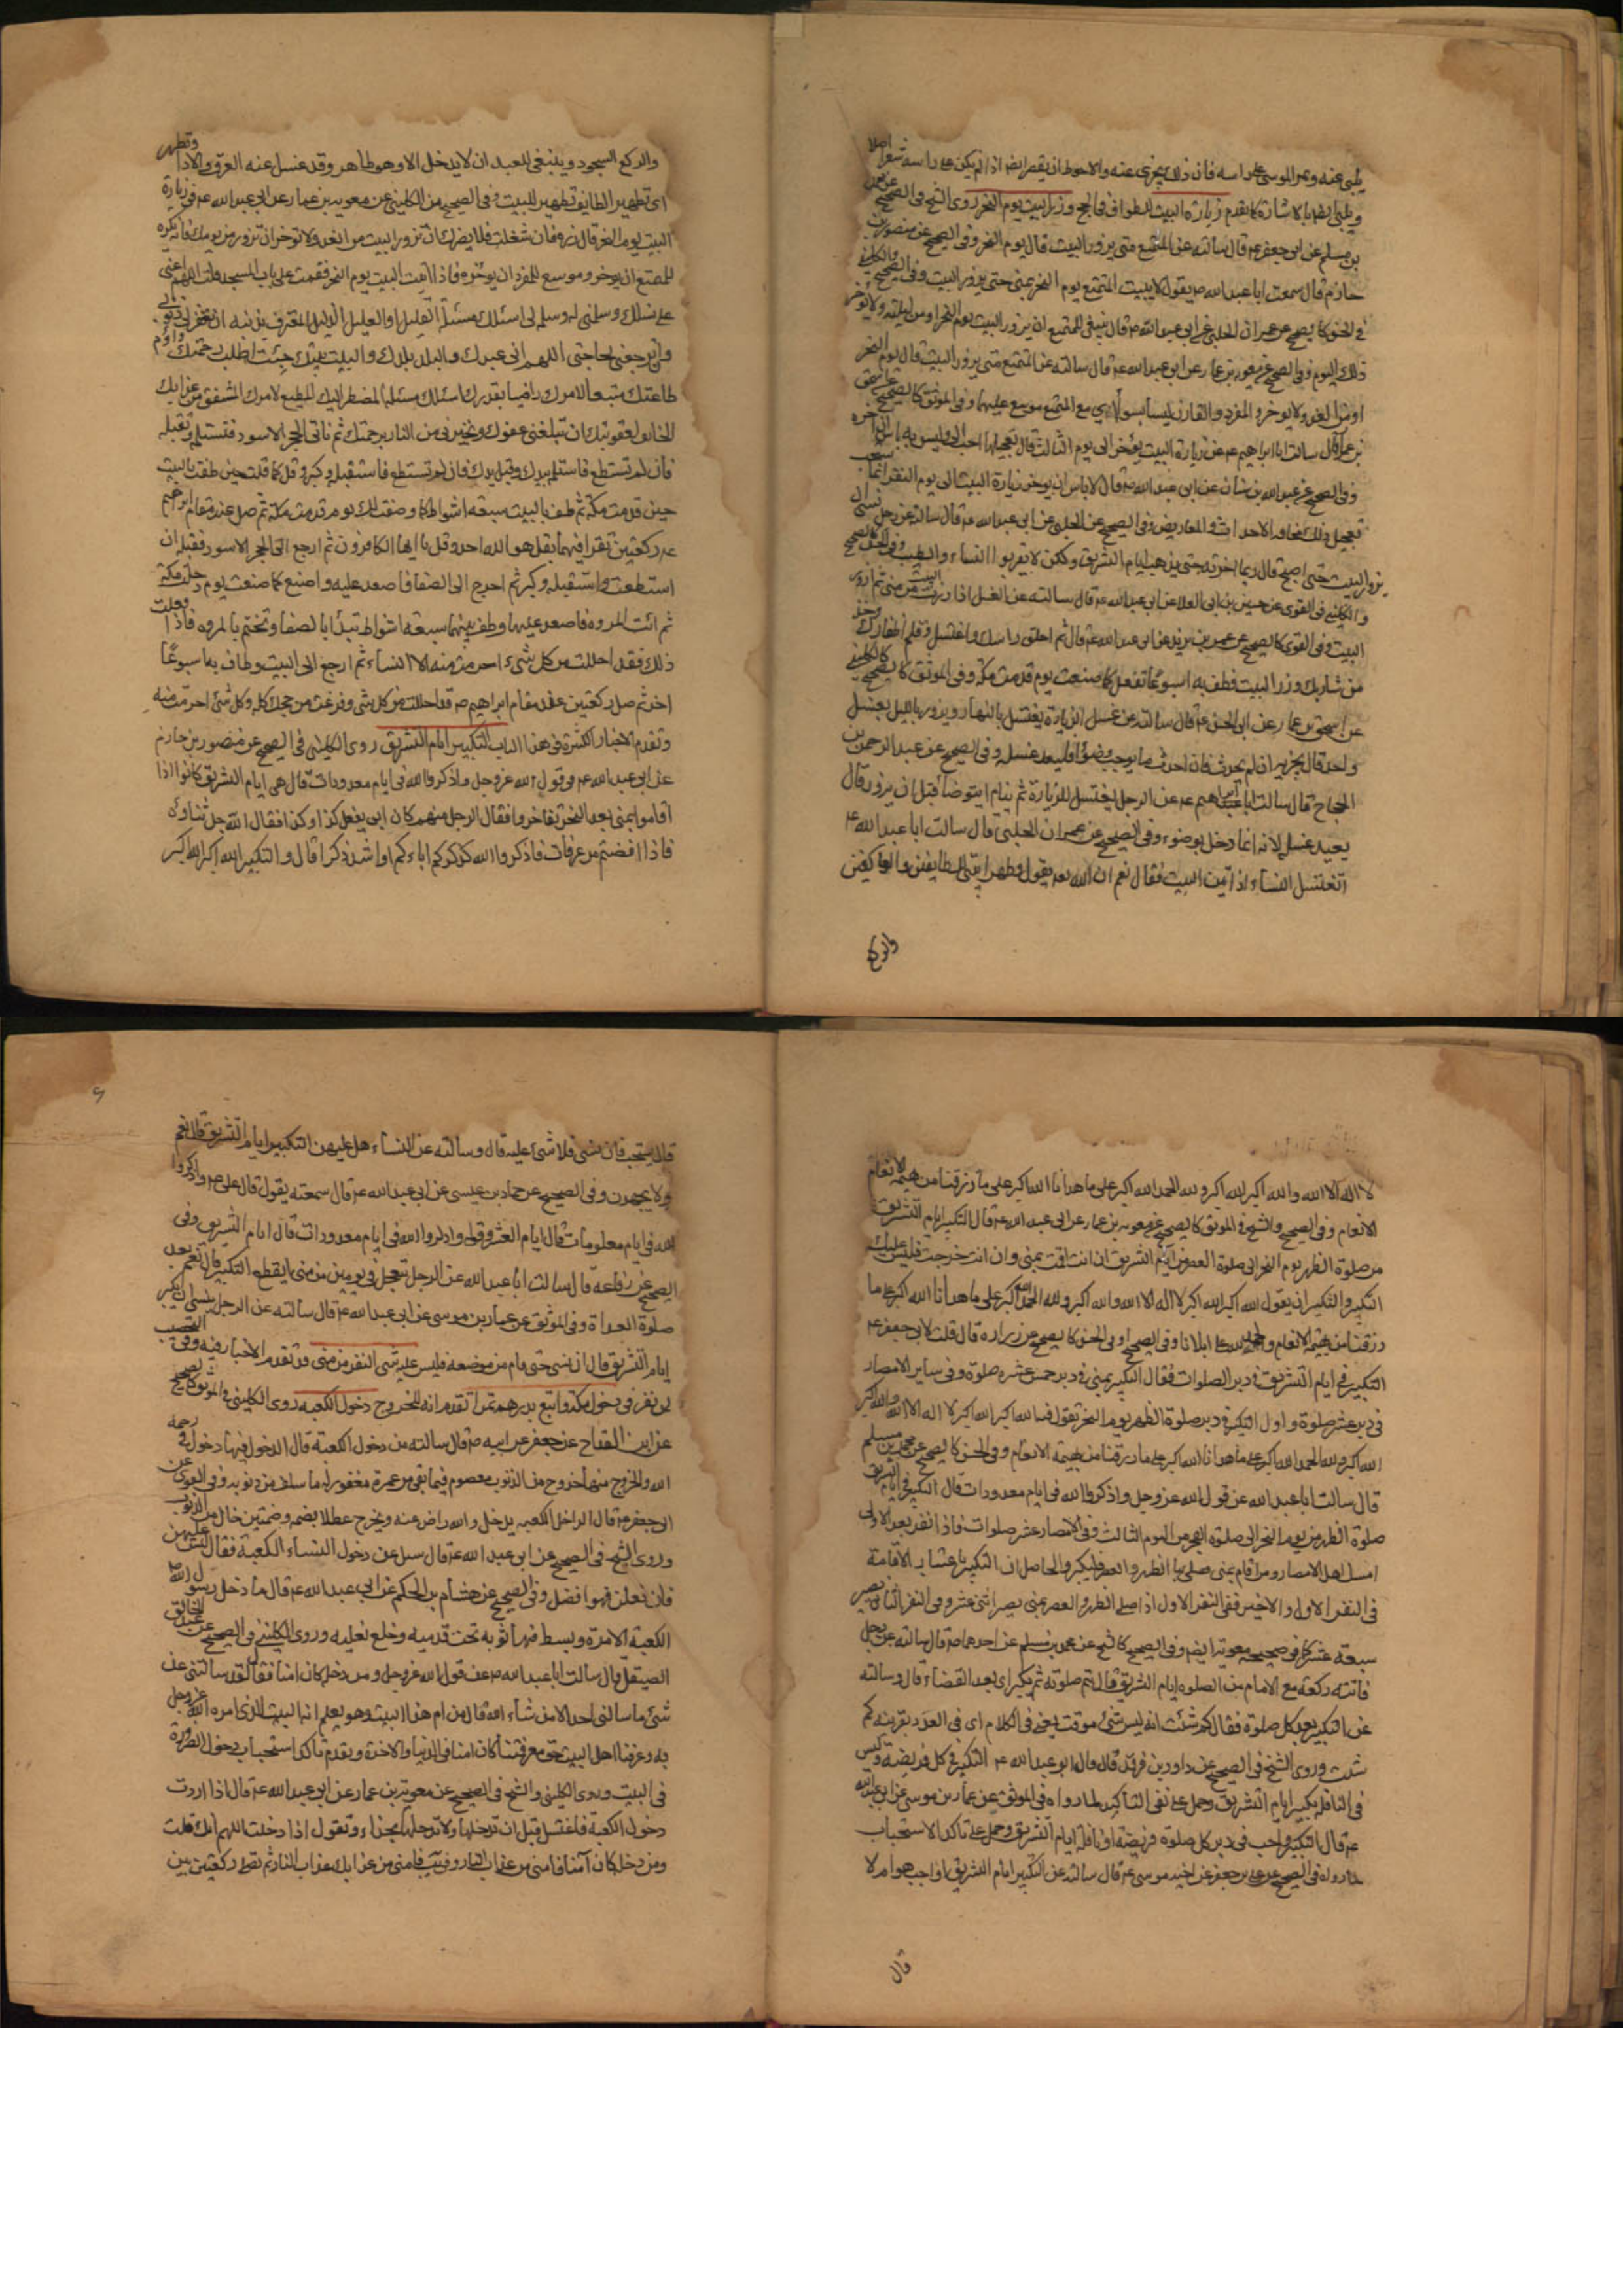 يلبي عنه ويمر الموسى على راسه فان ذلك يجزي عنه والاحوط ان يقصر ايضا اذا لم يكن على راسه شعر اصلا
ويلبي ايضا بالاشارة كما تقدم زيارة البيت الطواف في الحج وزر البيت يوم النحر روى الشيخ في الصحيح عن محمد
بن مسلم عن ابي جعفر ع قال سالته عن المتمتع متى يزور البيت قال يوم النحر وفي الصحيح عن منصور بن
حازم قال سمعت ابا عبد الله ص يقول لا يبيت المتمتع يوم النحر بمنى حتى يزور البيت وفي الصحيح والكليني
في الحسن كالصحيح عن عمران الحلبي عن ابي عبد الله ص قال ينبغي للمتمتع ان يزور البيت يوم النحر او من ليلته ولا يؤخر
ذلك اليوم وفي الصحيح عن معوية بن عمار عن ابي عبد الله ع قال سالته عن المتمتع متى يزور البيت قال يوم النحر
او من الغد ولا يوخر والمفرد والقارن ليسا بسواء مع المتمتع موسع عليهما وفي الموثق كالصحيح عن اسحق
بن عمار قال سالت ابا ابراهيم ع عن زيارة البيت يؤخر الى يوم الثالث قال تعجيلها احب الي وليس به باس ان اخره
وفي الصحيح عن عبد الله بن سنان عن ابي عبد الله ص قال لا باس ان يوخر زيارة البيت الى يوم النفر انما يستحب
تعجيل ذلك مخافة الاحداث والمعاريض وفي الصحيح عن الحلبي عن ابي عبد الله ع قال سالته عن رجل نسي ان
يزور البيت حتى اصبح قال ربما اخرته حتى يذهب ايام التشريق ولكن لا يقربوا النساء والطيب
والكليني في القوي عن حسين بن ابي العلا عن ابي عبد الله ع قال سالته عن الغسل اذا زرت البيت من منى
البيت وفي القوي كالصحيح عن عمر بن يزيد عن ابي عبد الله ع قال ثم احلق راسك واغتسل وقلم اظفارك وخذ
من شاربك وزر البيت فطف به اسبوعا تفعل كما صنعت يوم قدمت مكة وفي الموثق كالصحيح كالكليني
عن اسحق بن عمار عن ابي الحسن ع قال سالته عن غسل الزيارة يغتسل بالنهار ويزور بالليل بغسل
واحد قال يجزيه ان لم يحدث فان احدث ما يوجب وضوءا فليعد غسله وفي الصحيح عن عبد الرحمن بن
الحجاج قال سالت ابا ابراهيم ع عن الرجل يغتسل للزيارة ثم ينام ايتوضا قبل ان يزور قال
يعيد غسله لانه انما دخل بوضوء وفي الصحيح عن عمران الحلبي قال سالت ابا عبد الله ع
اتغتسل النساء اذا اتين البيت فقال نعم ان الله تعالى يقول وطهر بيتي للطايفين والعاكفين
والركع
والركع السجود وينبغي للعبد ان لا يدخل الا وهو طاهر وقد غسل عنه العرق والاذا وتطهر
اي تطهير الطايف تطهير للبيت وفي الصحيح من الكليني عن معوية بن عمار عن ابي عبد الله ع في زيارة
البيت يوم النحر قال زره فان شغلت فلا يضرك ان تزور البيت من الغد ولا توخر ان تزور من يومك فانه يكره
للمتمتع ان يوخر وموسع للمفرد ان يوخره فاذا اتيت البيت يوم النحر فقمت على باب المسجد قلت اللهم اعني
على نسكك وسلمني له وسلمه لي اسئلك مسئلة القليل او العليل الذليل المعترف بذنبه ان تغفر لي ذنوبي
وان ترجعني بحاجتي اللهم اني عبدك والبلد بلدك والبيت بيتك جئت اطلب رحمتك واؤم
طاعتك متبعا لامرك راضيا بقدرك اسئلك مسئلة المضطر اليك المطيع لامرك المشفق من عذابك
الخايف لعقوبتك ان تبلغني عفوك وتجيرني من النار برحمتك ثم تاتي الحجر الاسود فتستلمه وتقبله
فان لم تستطع فاستلمه بيدك وقبل يدك فان لم تستطع فاستقبله وكبر وقل كما قلت حين طفت بالبيت
حين قدمت مكة ثم طف بالبيت سبعة اشواط كما وصفت لك يوم قدمت مكة ثم صل عند مقام ابراهيم
ع ركعتين تقرا فيهما بقل هو الله احد وقل يا ايها الكافرون ثم ارجع الى الحجر الاسود فقبله ان
استطعت واستقبله وكبر ثم اخرج الى الصفا فاصعد عليه واصنع كما صنعت يوم دخلت مكة
ثم ائت المروة فاصعد عليها وطف بينهما سبعة اشواط تبدأ بالصفا وتختم بالمروة فاذا فعلت
ذلك فقد احللت من كل شيء احرمت منه الا النساء ثم ارجع الى البيت وطاف به اسبوعا
اخر ثم صل ركعتين عند مقام ابراهيم ص قد احللت من كل شي وفرغت من حجك كله وكل شئ احرمت منه
وتقدم الاخبار الكثيرة في هذا الباب التكبير ايام التشريق روى الكليني في الصحيح عن منصور بن حازم
عن ابي عبد الله ع في قول الله عز وجل واذكروا الله في ايام معدودات قال هي ايام التشريق كانوا اذا
اقاموا بمنى بعد النحر تفاخروا فقال الرجل منهم كان ابي يفعل كذا وكذا فقال الله جل ثناؤه
فاذا افضتم من عرفات فاذكروا الله كذكركم اباءكم او اشد ذكرا قال والتكبير الله اكبر الله اكبر
لا اله الا الله والله اكبر الله اكبر ولله الحمد الله اكبر على ما هدانا الله اكبر على ما رزقنا من بهيمة الانعام
الانعام وفي الصحيح والشيخ في الموثق كالصحيح عن معوية بن عمار عن ابي عبد الله ع قال التكبير ايام التشريق
من صلوة الظهر يوم النحر الى صلوة العصر من ايام التشريق ان انت اقمت بمنى وان انت خرجت فليس عليك
التكبير والتكبير ان يقول الله اكبر الله اكبر لا اله الا الله والله اكبر ولله الحمد الله اكبر على ما هدانا الله اكبر على ما
رزقنا من بهيمة الانعام والحمد لله على ما ابلانا وفي الصحيح او في الحسن كالصحيح عن زرارة قال قلت لابي جعفر ع
التكبير في ايام التشريق في دبر الصلوات فقال التكبير بمنى في دبر خمس عشرة صلوة وفي ساير الامصار
في دبر عشر صلوة واول التكبير في دبر صلوة الظهر يوم النحر تقول فيه الله اكبر الله اكبر لا اله الا الله والله اكبر
الله اكبر ولله الحمد الله اكبر على ما هدانا الله اكبر على ما رزقنا من بهيمة الانعام وفي الحسن كالصحيح عن محمد بن مسلم
قال سالت ابا عبد الله عن قول الله عز وجل واذكروا الله في ايام معدودات قال التكبير في ايام التشريق
صلوة الظهر من يوم النحر الى صلوة الفجر من اليوم الثالث وفي الامصار عشر صلوات فاذا نفر بعد الاولى
امسك اهل الامصار ومن اقام بمنى صلى بها الظهر والعصر فليكبر والحاصل ان التكبير باعتبار الاقامة
في النفر الاول والاخير ففي النفر الاول اذا صلى الظهر والعصر بمنى يصير اثنى عشر وفي النفر الثاني يصير
سبعة عشر كما في صحيحة معوية ايضا وفي الصحيح كالشيخ عن محمد بن مسلم عن احدهما ص قال سالته عن رجل
فاتته ركعة مع الامام من الصلوة ايام التشريق قال يتم صلوته ثم يكبر اي بعد القضاء قال وسالته
عن التكبير بعد كل صلوة فقال كم شئت انه ليس شئ موقت يعني في الكلام اي في العدد بقرينة كم
شئت وروى الشيخ في الصحيح عن داود بن فرقد قال قال ابو عبد الله ع التكبير في كل فريضة وليس
في النافلة تكبير ايام التشريق وحمل على نفي التأكيد لما رواه في الموثق عن عمار بن موسى عن ابي عبد الله
ع قال التكبير واجب في دبر كل صلوة فريضة او نافلة ايام التشريق وحمل على تاكد الاستحباب
لما رواه في الصحيح عن علي بن جعفر عن اخيه موسى ع قال سالته عن التكبير ايام التشريق اواجب هو ام لا
قال
قال يستحب فان نسي فلا شئ عليه قال وسالته عن النساء هل عليهن التكبير ايام التشريق قال نعم
ولا يجهرن وفي الصحيح عن حماد بن عيسى عن ابي عبد الله ع قال سمعته يقول قال علي ع واذكروا
الله في ايام معلومات قال ايام العشر وقوله واذكروا الله في ايام معدودات قال ايام التشريق وفي
الصحيح عن رفاعة قال سالت ابا عبد الله عن الرجل تعجل في يومين من منى ايقطع التكبير قال نعم بعد
صلوة الغداة وفي الموثق عن عمار بن موسى عن ابي عبد الله ع قال سالته عن الرجل ينسى ان يكبر
ايام التشريق قال ان نسي حتى قام من موضعه فليس عليه شئ النفر من منى قد تقدم الاخبار فيه وفي التحصيب
لمن نفر في دخول مكة وابتع بدرهم تمرا تقدم انه للخروج دخول الكعبة روى الكليني في الموثق كالصحيح
عن ابن القداح عن جعفر عن ابيه ص قال سالته عن دخول الكعبة قال الدخول فيها دخول في رحمة
الله والخروج منها خروج من الذنوب معصوم فيما بقي من عمره مغفور له ما سلف من ذنوبه وفي القوي عن
ابي جعفر ع قال الداخل الكعبة يدخل والله راض عنه ويخرج عطلا من الذنوب
وروى الشيخ في الصحيح عن ابي عبد الله ع قال سئل عن دخول النساء الكعبة فقال ليس عليهن
فان فعلن فهو افضل وفي الصحيح عن هشام بن الحكم عن ابي عبد الله ع قال ما دخل رسول الله ص
الكعبة الا مرة وبسط فيها ثوبه تحت قدميه وخلع نعليه وروى الكليني في الصحيح عن عبد الخالق
الصيقل قال سالت ابا عبد الله ص عن قول الله عز وجل ومن دخله كان امنا فقال لقد سالتني عن
شئ ما سالني احد الا من شاء الله قال من ام هذا البيت وهو يعلم انه البيت الذي امره الله عز وجل
به وعرفنا اهل البيت حق معرفتنا كان امنا في الدنيا والاخرة وتقدم تاكد استحباب دخول الصرورة
في البيت وروى الكليني والشيخ في الصحيح عن معوية بن عمار عن ابي عبد الله ع قال اذا اردت
دخول الكعبة فاغتسل قبل ان تدخلها ولا تدخلها بحذاء وتقول اذا دخلت اللهم انك قلت
ومن دخله كان آمنا فامني من عذاب النار وفامني من عذابك عذاب النار ثم تصلي ركعتين بين